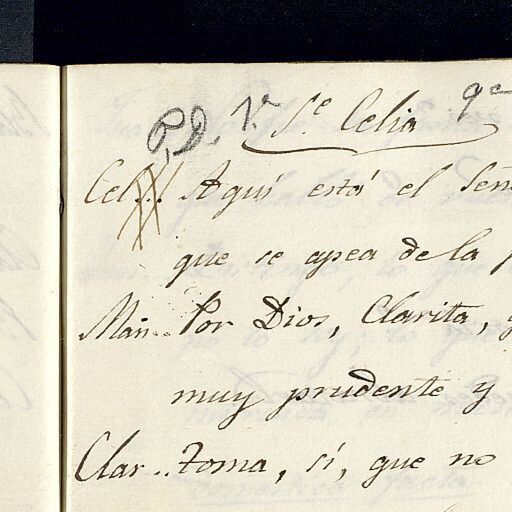 P.D. V.ª S.e Celia
Cel... Aquí está el Señ
que se apea de la p
Man... Por Dios, Clarita, y
muy prudente y
Clar... Toma, sí, que no